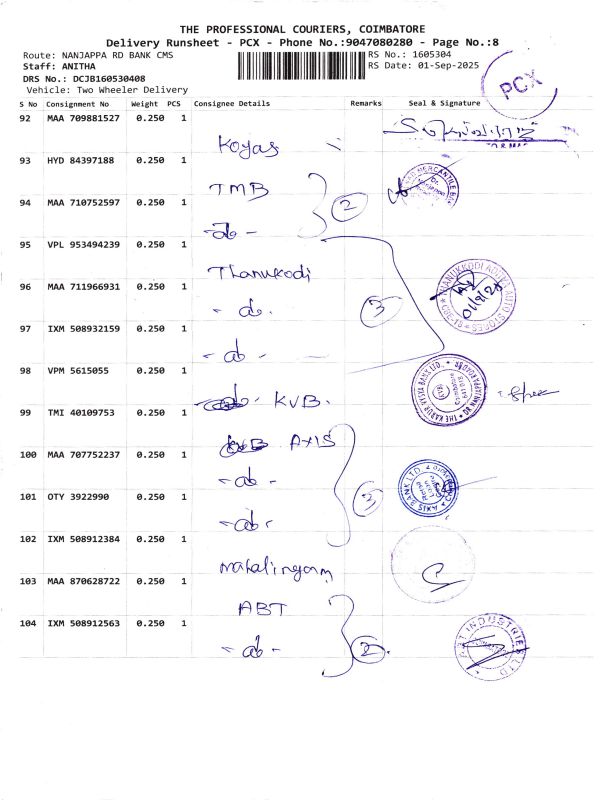 THE PROFESSIONAL COURIERS, COIMBATORE
Delivery Runsheet - PCX - Phone No.:9047080280 - Page No.:8
Route: NANJAPPA RD BANK CMS RS No.: 1605304
Staff: ANITHA RS Date: 01-Sep-2025
DRS No.: DCJB160530408
Vehicle: Two Wheeler Delivery
PCX
S No Consignment No Weight PCS Consignee Details Remarks Seal & Signature
92 MAA 709881527 0.250 1
Koyas
93 HYD 84397188 0.250 1
TMB
94 MAA 710752597 0.250 1 2
-do-
95 VPL 953494239 0.250 1
Thanukodi
96 MAA 711966931 0.250 1
-do. 3
01/9/25
97 IXM 508932159 0.250 1
-do-
98 VPM 5615055 0.250 1
KVB.
99 TMI 40109753 0.250 1
AXIS
100 MAA 707752237 0.250 1
-do-
101 OTY 3922990 0.250 1 3
-do-
AXIS BANK LTD.
102 IXM 508912384 0.250 1
mahalingam
103 MAA 870628722 0.250 1
ABT
104 IXM 508912563 0.250 1
-do- 2
INDUSTRIES LTD